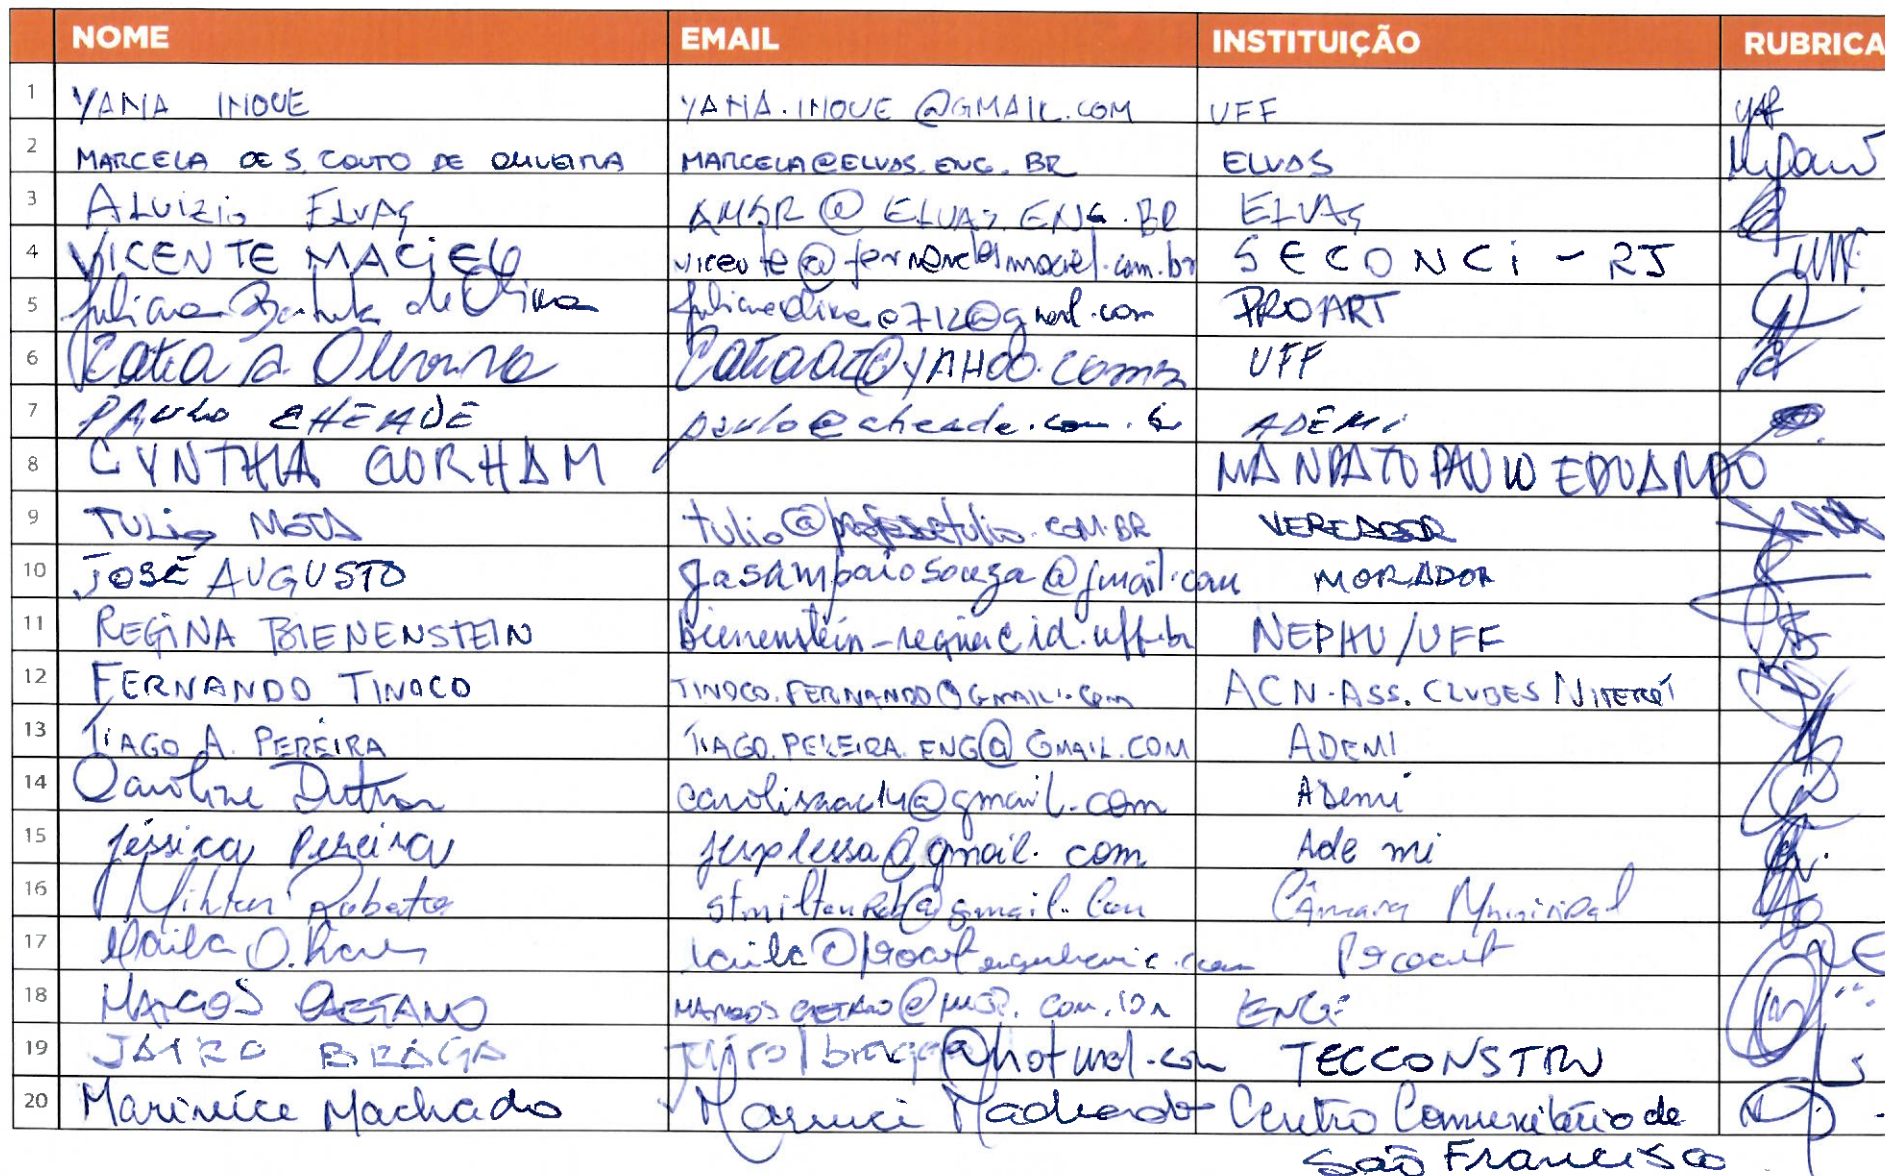 NOME EMAIL INSTITUIÇÃO RUBRICA
1 YANA INOUE YANA.INOUE@GMAIL.COM UFF
2 MARCELA DE S. COUTO DE OLIVEIRA MARCELA@ELVAS.ENG.BR ELVAS
3 ALUIZIO ELVAS AMSR@ELVAS.ENG.BR ELVAS
4 VICENTE MACIEL vicente@fernandesmaciel.com.br SECONCI - RJ
5 Juliana Batista de Oliveira PROART
6 Catia A. Oliveira UFF
7 PAULO CHEADE paulo@cheade.com.br ADEMI
8 CYNTHIA GORHAM MANDATO PAULO EDUARDO
9 TULIO MOTA tulio@professortulio.COM.BR VEREADOR
10 JOSÉ AUGUSTO jasampaiosouza@gmail.com MORADOR
11 REGINA BIENENSTEIN bienenstein_regina@id.uff.br NEPHU/UFF
12 FERNANDO TINOCO TINOCO.FERNANDO@GMAIL.com ACN-ASS. CLUBES NITERÓI
13 TIAGO A. PEREIRA TIAGO.PEREIRA.ENG@GMAIL.COM ADEMI
14 Caroline Dutra carolisaac14@gmail.com ADEMI
15 Jéssica Pereira jesplessa@gmail.com Ademi
16 Milton Roberto Câmara Municipal
17 Proart
18 MARCOS CAETANO
19 JAIRO BRAGA TECCONSTRU
20 Marinice Machado Machado Centro Comunitário de
São Francisco